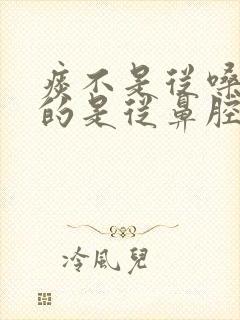 痰不是從嗓
的是從鼻腔
冷風兒